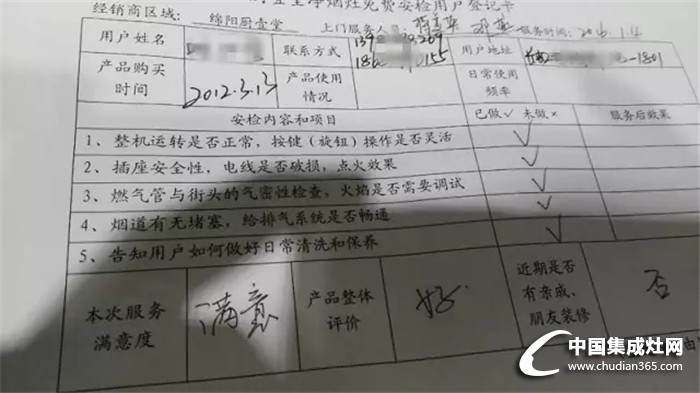 净烟灶免费安检用户登记卡
经销商区域: 绵阳厨壹堂 上门服务人员: 服务时间:
用户姓名 联系方式 139 269 186 0155 用户地址 -1801
产品购买时间 2012.3.13 产品使用情况 日常使用频率
安检内容和项目 已做√ 未做× 服务后效果
1、整机运转是否正常,按健(旋钮)操作是否灵活 √
2、插座安全性,电线是否破损,点火效果 √
3、燃气管与街头的气密性检查,火焰是否需要调试 √
4、烟道有无堵塞,给排气系统是否畅通 √
5、告知用户如何做好日常清洗和保养 √
本次服务满意度 满意 产品整体评价 好 近期是否有亲戚、朋友装修 否
中国集成灶网
www.chudian365.com